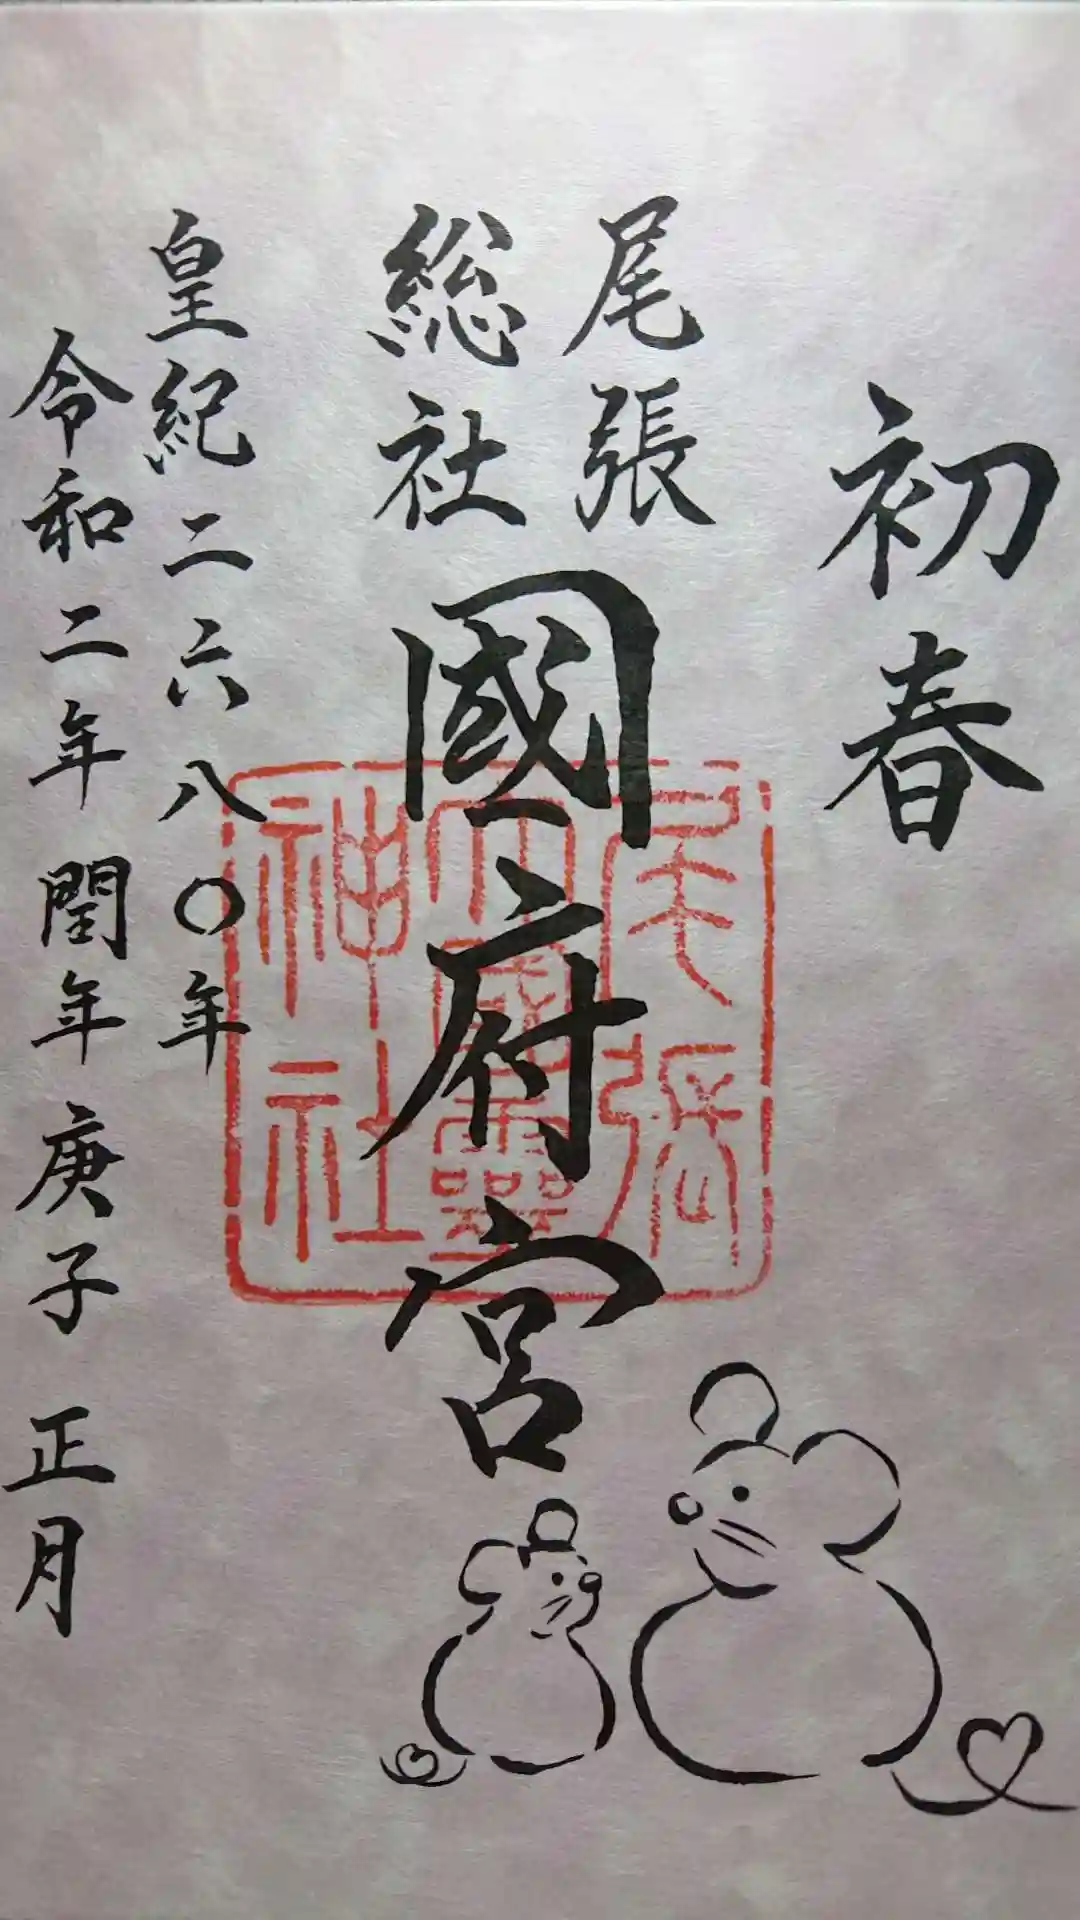 初春
尾張
総社
國府宮
尾張
大國霊
神社
皇紀二六八〇年
令和二年 閏年 庚子 正月